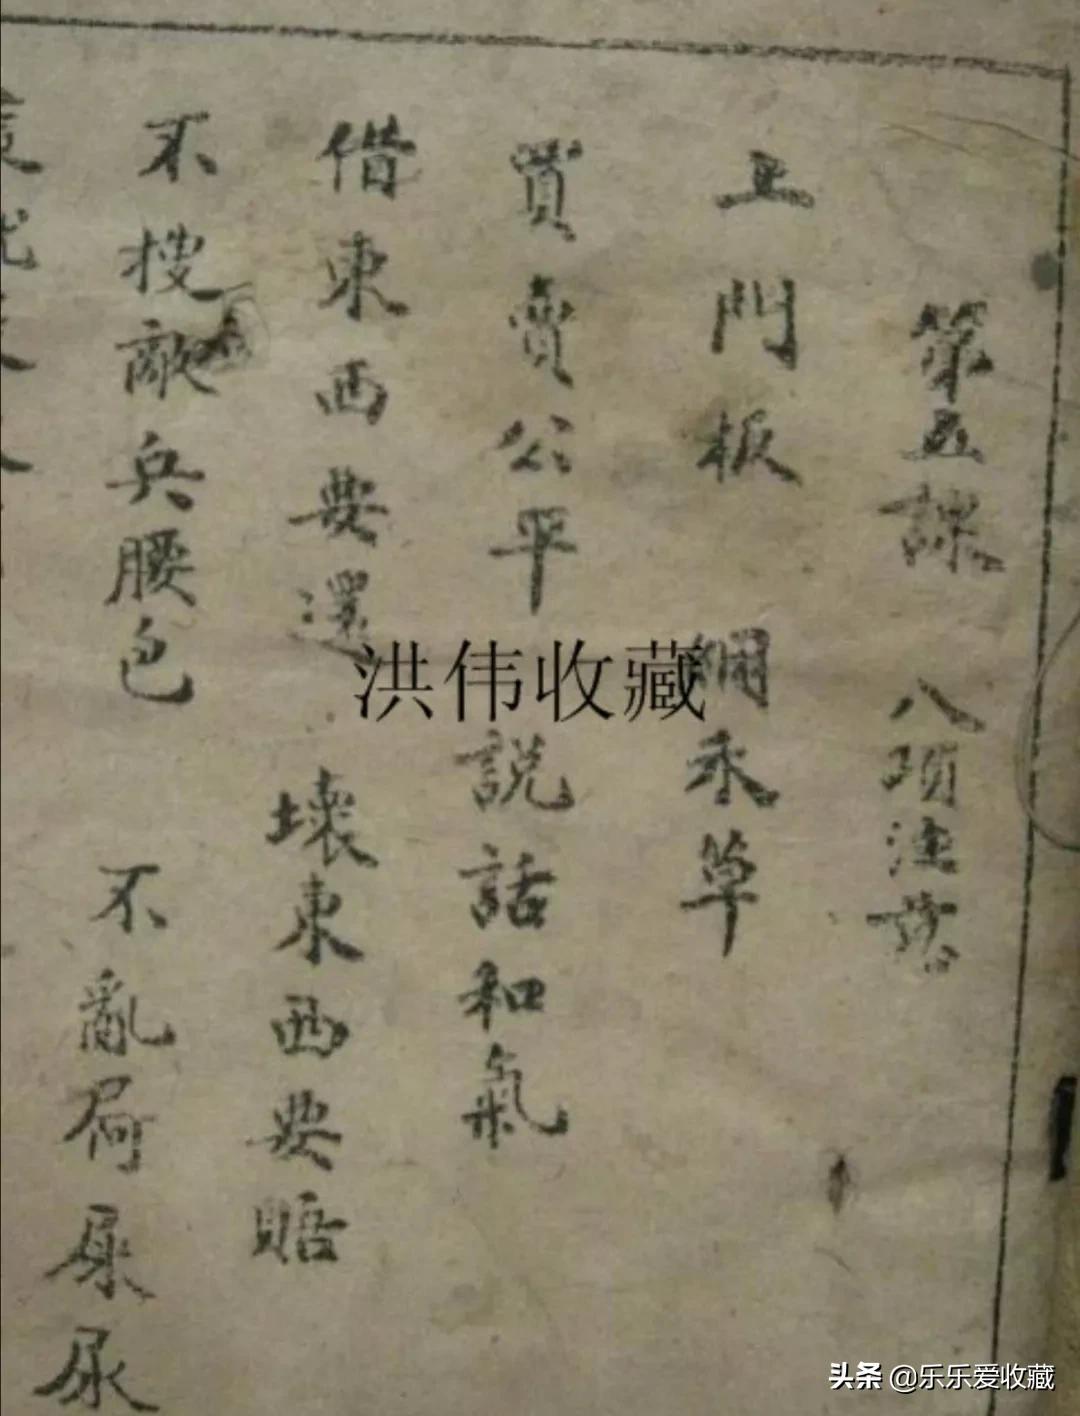 第五課 八項注意
上門板 綑禾草
買賣公平 説話和氣
借東西要還 壞東西要賠
不搜敵兵腰包 不亂屙屎尿
洪伟收藏
头条 @乐乐爱收藏